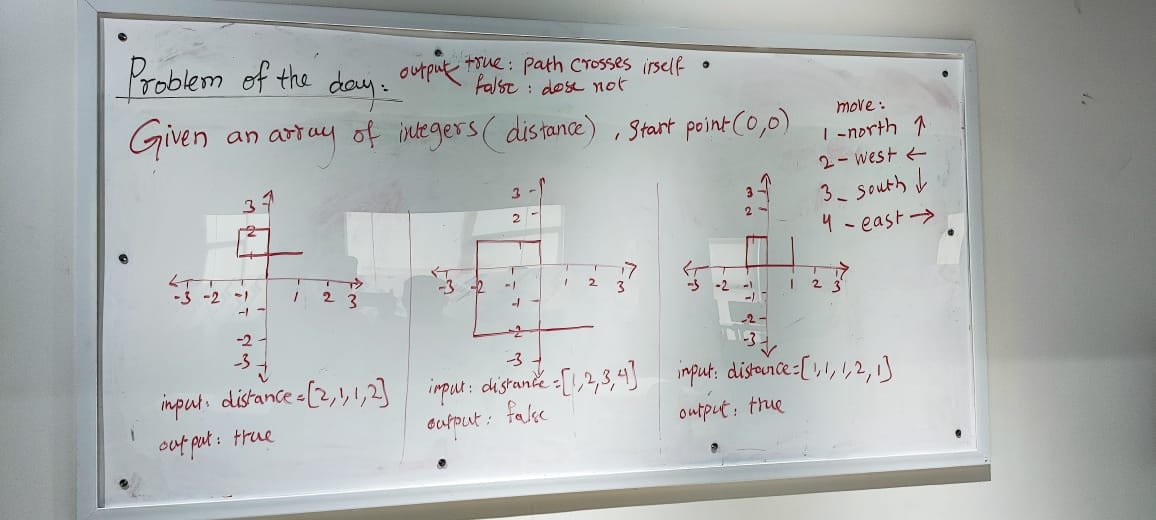 Problem of the day:
output true: path crosses irself
false : dose not
Given an array of integers (distance), Start point (0,0)
move:
1 - north ↑
2 - west ←
3 - south ↓
4 - east →
3
2
1
-3 -2 -1 1 2 3
-1
-2
-3
input: distance = [2,1,1,2]
output: true
3
2
-3 -2 -1 1 2 3
-1
-2
-3
input: distance = [1,2,3,4]
output: false
3
2
-3 -2 -1 1 2 3
-1
-2
-3
input: distance = [1,1,1,2,1]
output: true